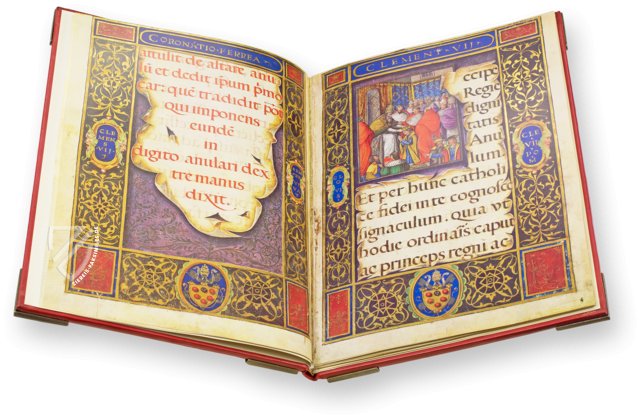 CORONATIO FERREA
attulit de altare anu
lū et dedit ip̄um pm̄c
car: quē tradidit pōt
qui imponens
eundē
in
digito anulari dex
træ manus
dixit.
CLE
MENS
VII
CLEMENT VII
ccipe
Regie
digni
tatis
Anu
lum
Et per hunc catholi
ce fidei in te cognosce
signaculum. quia vt
hodie ordinar̄s caput
ac princeps regni ac
CLE
VII
PO
4